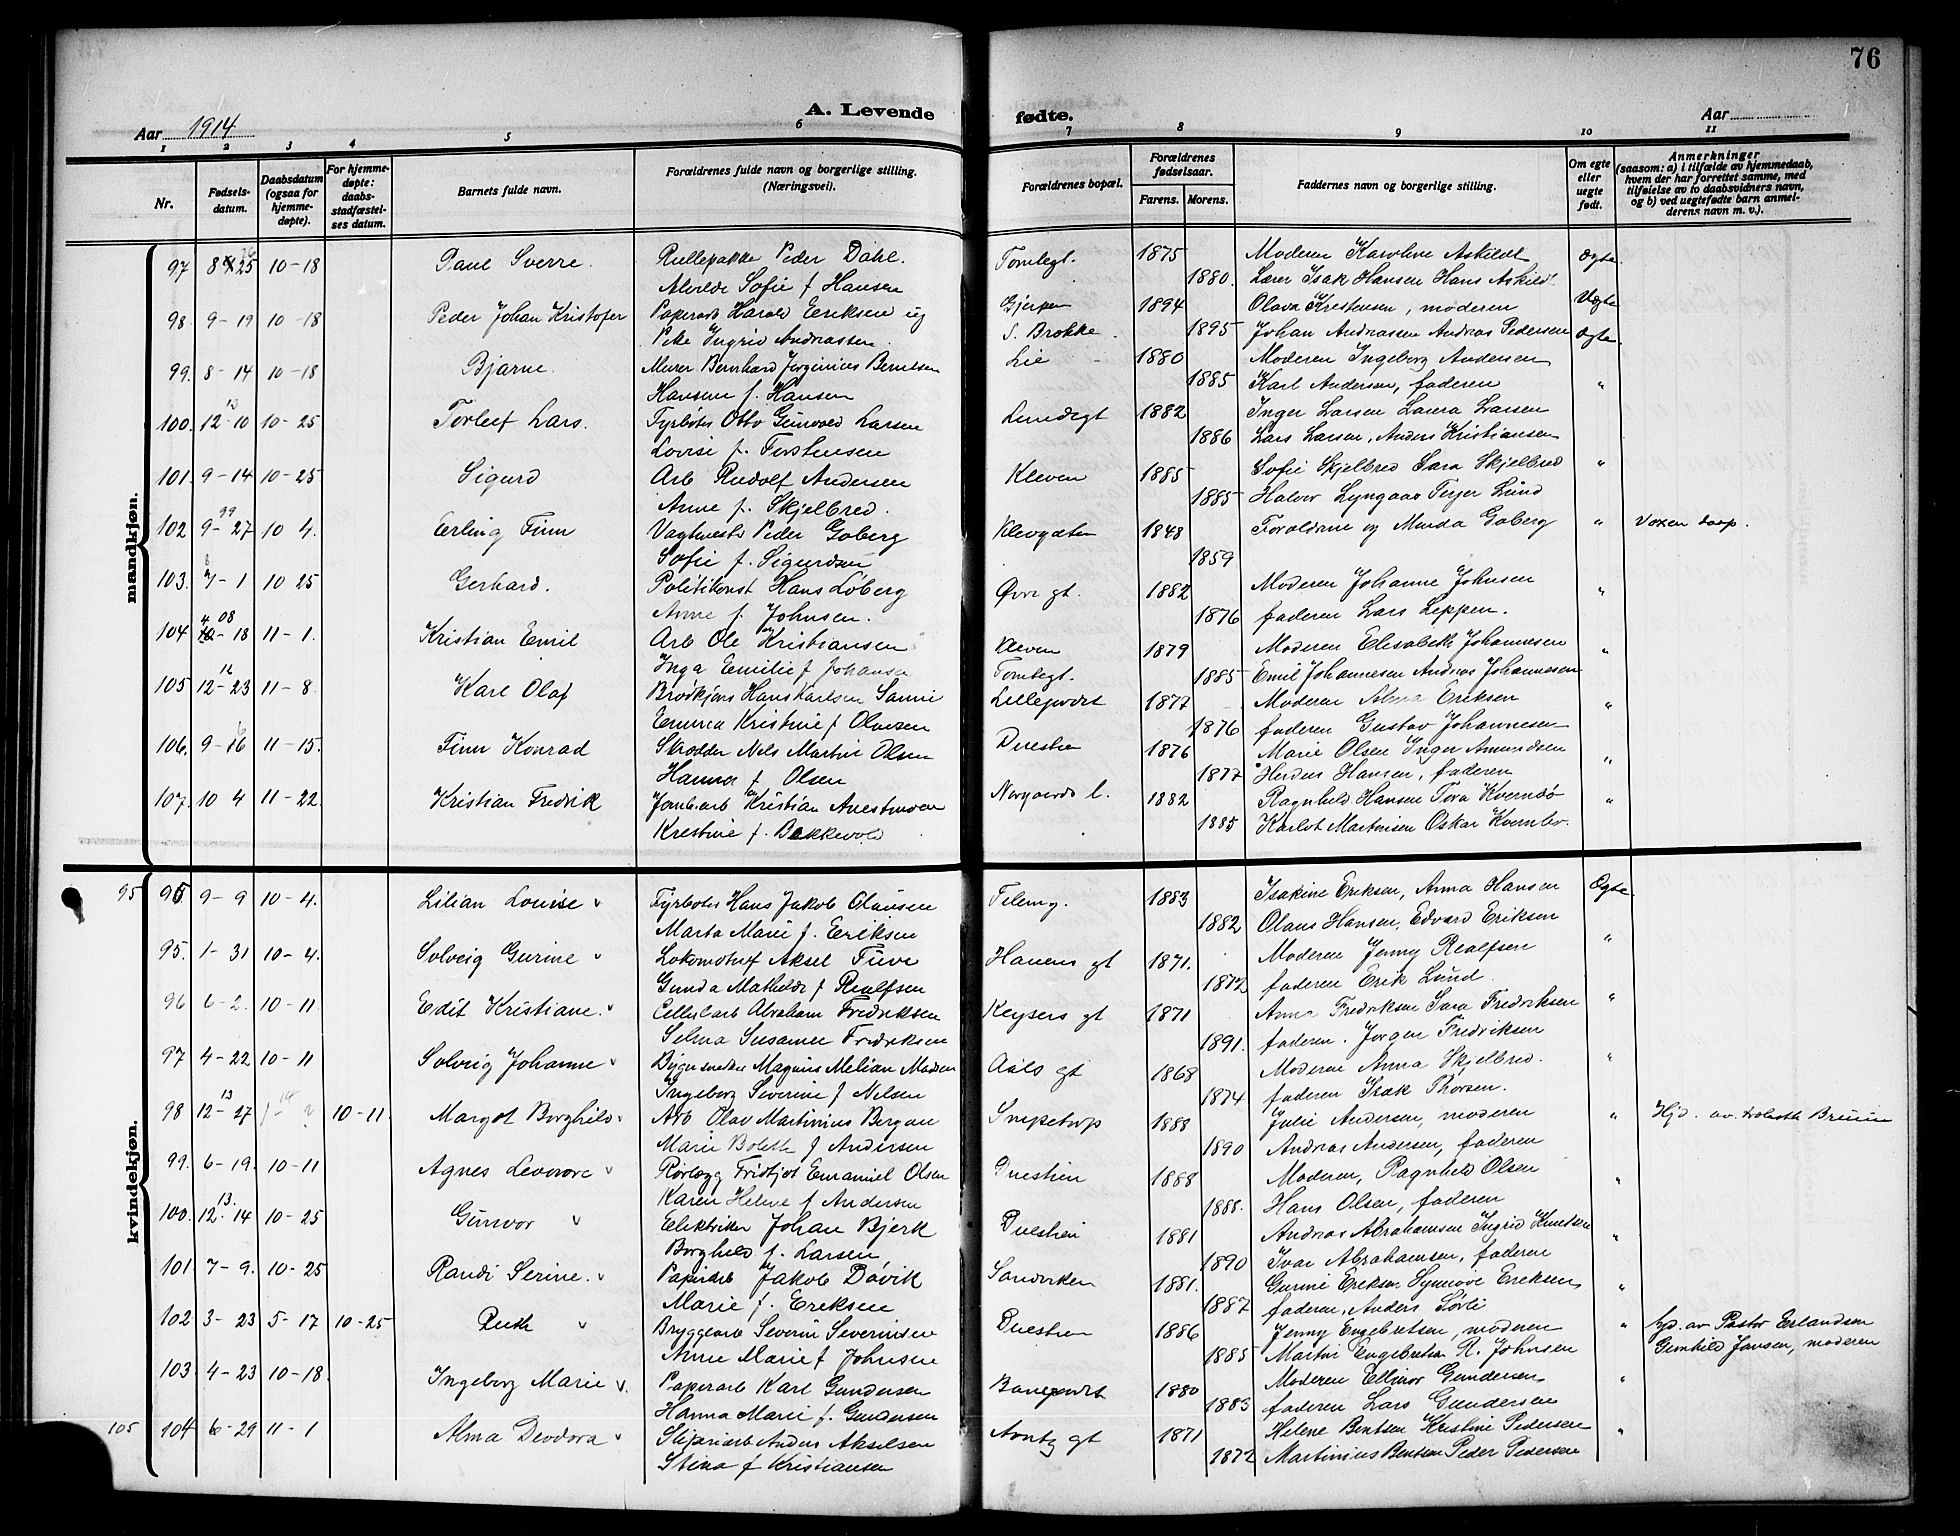 76
A. Levende fødte.
Aar 1914
Aar
1 2 3 4 5 6 7 8 9 10 11
Nr.
Fødsels-datum.
Daabsdatum (ogsaa for hjemme-døpte).
For hjemme-døpte: daabs-stadfæstel-ses datum.
Barnets fulde navn.
Forældrenes fulde navn og borgerlige stilling. (Næringsvei).
Forældrenes bopæl.
Forældrenes fødselsaar.
Farens. Morens.
Faddernes navn og borgerlige stilling.
Om egte eller uegte født.
Anmerkninger (saasom: a) i tilfælde av hjemmedaab, hvem der har forrettet samme, med tilføielse av to daabsvidners navn, og b) ved uegtefødte barn anmel-derens navn m. v.).
mandkjøn.
97 8 25 10-18 Paul Sverre. Rullepakke Peder Dahl. Tomtegt. 1875 Moderen Karoline Askildt Ægte
Alvilde Sofie f Hansen 1880. Lærer Isak Hansen Hans Askild.
98. 9-19 10-18 Peder Johan Kristofer Papirarb Harald Eriksen ug Gjerpen 1894 Olava Kristensen, moderen Uægte
Pike Ingrid Andreassen S. Brekke 1895 Johan Andreassen Andreas Pedersen Ægte
99. 8-14 10-18 Bjarne. Murer Bernhard Jørginius Berntsen Lie 1880 Moderen Ingeborg Andersen
Hansine f. Hansen 1885 Karl Andersen, faderen "
100. 12-10 13 10-25 Torleif Lars. Fyrbøter Otto Gunvald Larsen Lundegt 1882 Inger Larsen Laura Larsen
Lovise f. Torstensen 1886 Lars Larsen, Anders Kristiansen
101. 9-14 10-25 Sigurd Arb Rudolf Andersen Kleven 1885 Sofie Skjelbred Sara Skjelbred "
Anne f. Skjelbred. 1885 Halvor Lyngaas Terjer Lund
102 9-27 99 10 4. Erling Finn Vagtmester Peder Goberg Klevgaten 1848 Forældrene og Minda Goberg " Voxen daap.
Sofie f. Sigurdsen 1859
103. 7-1 8 10 25 Gerhard. Politikonst Hans Løberg Øvre gt. 1882 Moderen Johanne Johnsen "
Anne f. Johnsen. 1876 faderen Lars Leppen.
104 -18 08 11-1. Kristian Emil Arb Ole Kristiansen Kleven 1879 Moderen Elisabeth Johannesen "
Inga Emilie f Johansen Tomtegt. 1885 Emil Johannesen Andreas Johannesen
105 12-23 12 11-8. Karl Olaf Brødkjøre Hans Karlsen Sanni Lillegaordt 1877 Moderen Alma Eriksen "
Emma Kristine f Olavsen 1876 faderen Gustav Johannesen
106. 9-16 11-15. Finn Konrad Skrædder Nels Martin Olsen Duestien 1876 Marie Olsen Inger Amundsen "
Hanna f Olsen 1877 Herdus Hansen, faderen
107. 10 4 11-22. Kristian Fredrik Jernbarb Kristian Anestmoen Norgaards l. 1882 Ragnhild Hansen Tora Kverndø "
Kristine f. Bakkevold 1885 Karlot Martinsen Oskar Kverndø.
kvindekjøn.
95 95 9-9 10-4. Lilian Louise Fyrbøter Hans Jakob Olausen Telemg. 1883 Isakine Eriksen, Anna Hansen Ægte
Marta Marie f. Eriksen 1882 Olaus Hansen, Edvard Eriksen
95. 1-31 10-4. Solveig Gurine Lokomotivf Aksel Tuve Hauens gt 1871. Moderen Jenny Realfsen "
Gunda Mathilde f Realfsen 1872 faderen Erik Lund.
96 6-2. 10-11 Edit Kristiane. Cellul arb Abraham Fredriksen Keysers gt 1871 Anna Fredriksen Sara Fredriksen "
Selma Susanne Fredriksen 1891. faderen. Jørgen Fredriksen
97 4-22 10-11 Solveig Johanne Bygnsnekker Magnus Melian Madsen Aals gt 1868 Moderen Anna Skjelbred. "
Ingeborg Severine f Nilsen 1874 faderen Isak Thorsen.
98 12-27 13 10-11. Margot Borghild Arb Olav Martinius Bergan Snipetorp 1888 Julie Andersen, moderen " Hjd. av Bruun
Marie Bolette f Andersen 1890 Andreas Andersen, faderen
99. 6-19. 10-11 Agnes Leonore Rørlægg Fridtjof Emanuel Olsen Duestien 1888 Moderen, Ragnhild Olsen "
Karen Helene f Andersen 1888. Hans Olsen, faderen
100. 12-14 13. 10-25 Gunvor Elektriker Johan Bjerk Duestien 1881 Andreas Abrahamsen Ingrid Knudsen "
Borghild f. Larsen 1890 Ivar Abrahamsen, faderen
101. 7-9. 10-25 Randi Serine. Papirarb Jakob Døvik Sandviken 1881. Gurine Eriksen Synnove Eriksen "
Marie f. Eriksen 1887 faderen, Anders Sørli
102 3-23 5-17 10-25 Ruth Bryggearb Severin Severinsen Duestien 1886 Jenny Engebretsen, moderen " hjd. av Pastor Erlandsen
Anne Marie f Johnsen 1885 Martin Engebretsen R. Johnsen Gunhild Jansen, moderen
103 4-23 10-18. Ingeborg Marie Papirarb Karl Gundersen Banegaordt 1880 Moderen Ellinor Gundersen "
Hanna Marie f. Gundersen 1883 faderen Lars Gundersen
105 104 6-29 11-1 Alma Deodora Sliperiarb Anders Akselsen Aontz gt 1871 Helene Bentsen Kristine Pedersen "
Stina f Kristiansen 1872 Martinius Bentsen Peder Pedersen